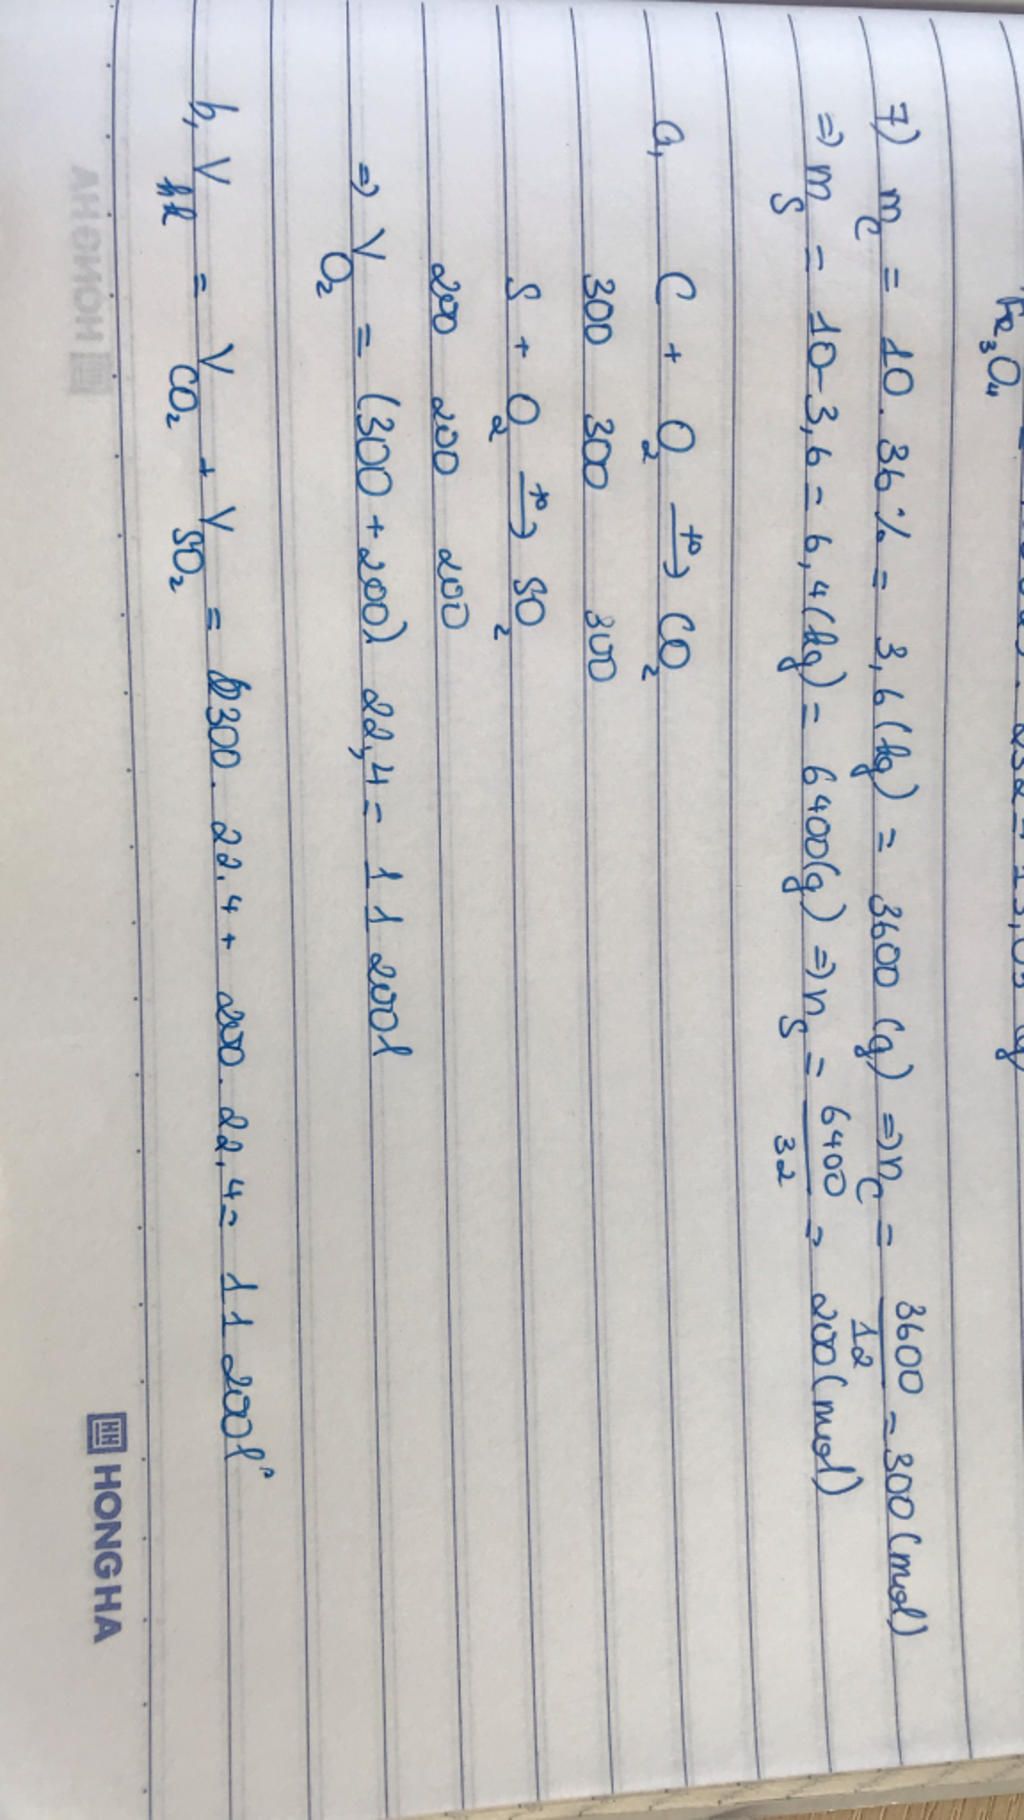 Fe₃O₄
7) m_C = 10. 36% = 3,6 (kg) = 3600 (g) => n_C = 3600/12 = 300 (mol)
=> m_S = 10-3,6 = 6,4 (kg) = 6400(g) => n_S = 6400/32 = 200 (mol)
a, C + O₂ t°→ CO₂
300 300 300
S + O₂ t°→ SO₂
200 200 200
=> V_O₂ = (300 + 200) 22,4 = 11 200l
b, V_hk = V_CO₂ + V_SO₂ = 300. 22.4 + 200. 22,4 = 11 200l
HONG HA
HONG HA